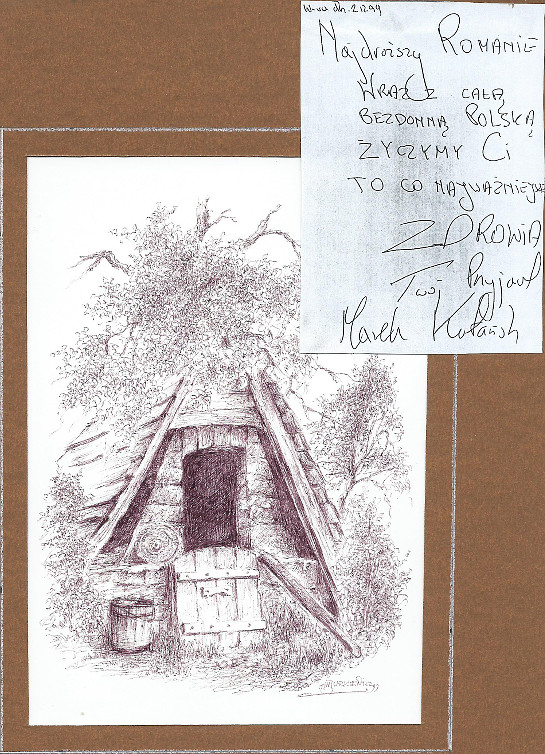 W-wa dn. 2.12.99
Najdroższy ROMANIE
WRAZ Z CAŁĄ
BEZDOMNĄ POLSKĄ
ŻYCZYMY Ci
TO CO NAJWAŻNIEJSZE
ZDROWIA
Twój Przyjaciel
Marek Kotański